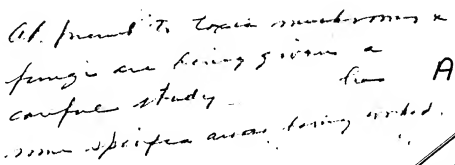 At present to toxic mushrooms &
fungi are being given a
careful study. has A
some specific areas being worked.